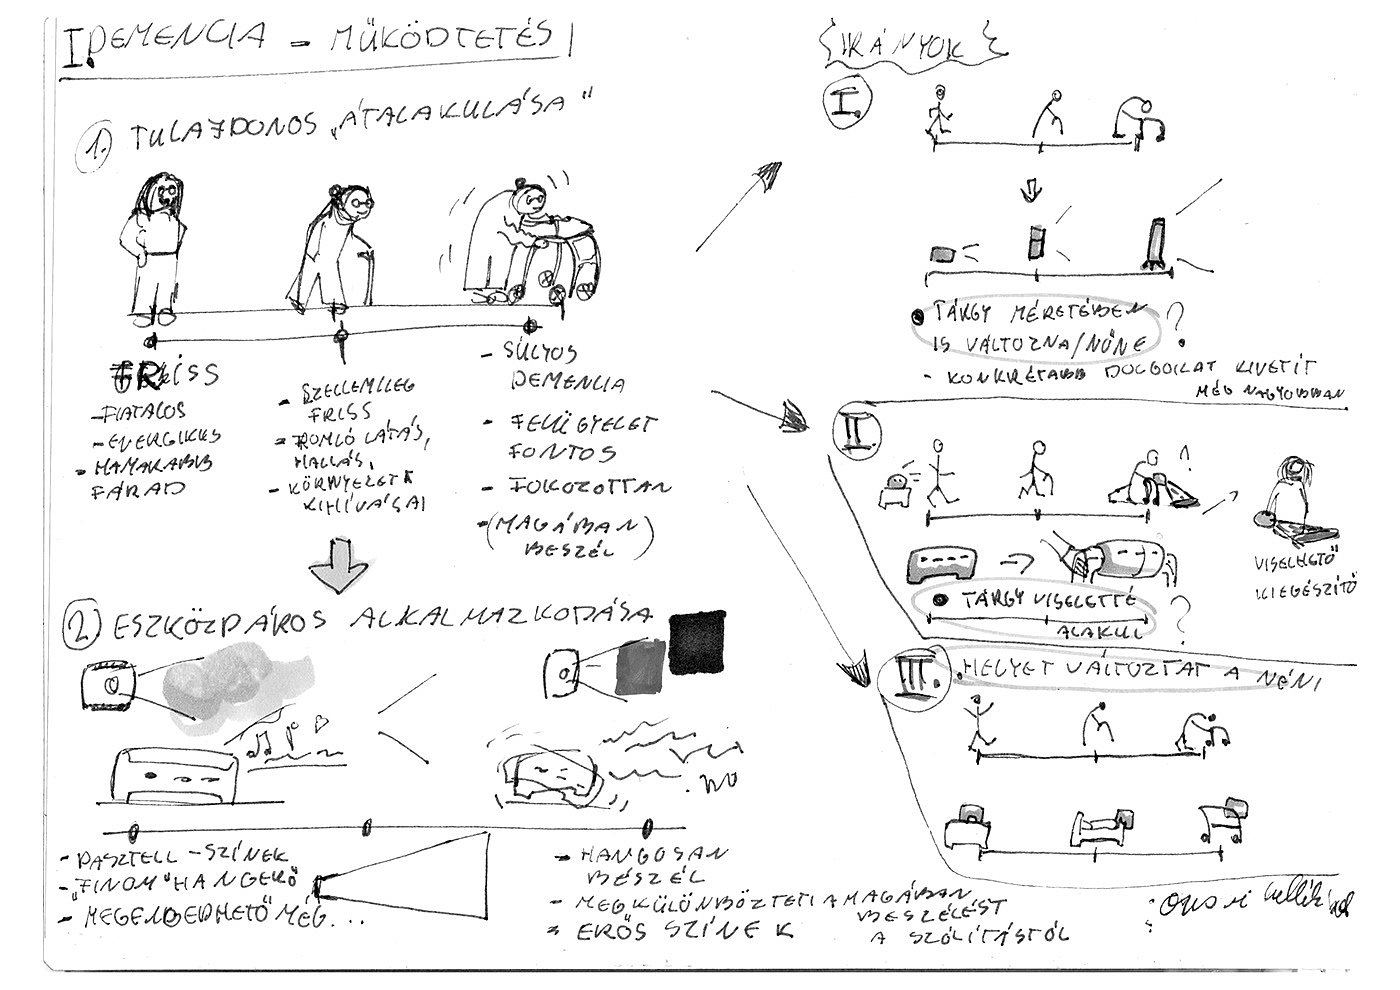 I. DEMENCIA - MŰKÖDTETÉS
1. TULAJDONOS „ÁTALAKULÁSA"
FRISS
- FIATALOS
- ENERGIKUS
- HAMARABB
FÁRAD
- SZELLEMILEG
FRISS
- ROMLÓ LÁTÁS,
HALLÁS,
- KÖRNYEZET
KIHÍVÁSAI
- SÚLYOS
DEMENCIA
- FELÜGYELET
FONTOS
- FOKOZOTTAN
- (MAGÁBAN
BESZÉL)
2. ESZKÖZPÁROS ALKALMAZKODÁSA
- PASZTELL-SZÍNEK
- „FINOM" HANGERŐ
- MEGENGEDHETŐ MÉG...
- HANGOSAN
BESZÉL
- MEGKÜLÖNBÖZTETI A MAGÁBAN
BESZÉLÉST
A SZÓLÍTÁSTÓL
- ERŐS SZÍNEK
IRÁNYOK
I.
TÁRGY MÉRETÉBEN
IS VÁLTOZNA/NŐNE ?
- KONKRÉTABB DOLGOKAT KIVETÍT
MÉG NAGYOBBAN
II.
VISELHETŐ
KIEGÉSZÍTŐ
TÁRGY VISELETTÉ
ALAKUL ?
III. HELYET VÁLTOZTAT A NÉNI